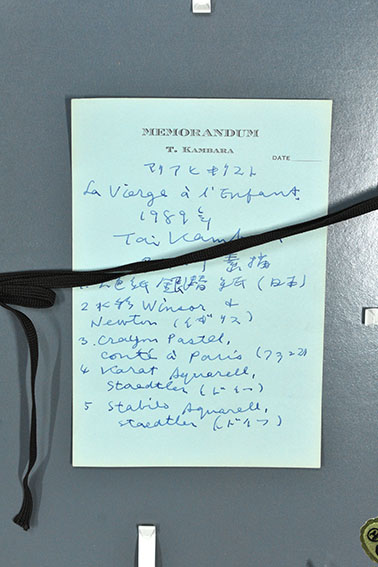 MEMORANDUM
T. KAMBARA
DATE
マリアとキリスト
La Vierge à l'Enfant
1989
Tai Kamba
素描
1. 色紙 (日本)
2 水彩 Winsor &
Newton (イギリス)
3. Crayon Pastel,
conté à Paris (フランス)
4 Karat Aquarell,
Staedtler (ドイツ)
5 Stabilo Aquarell,
Staedtler (ドイツ)